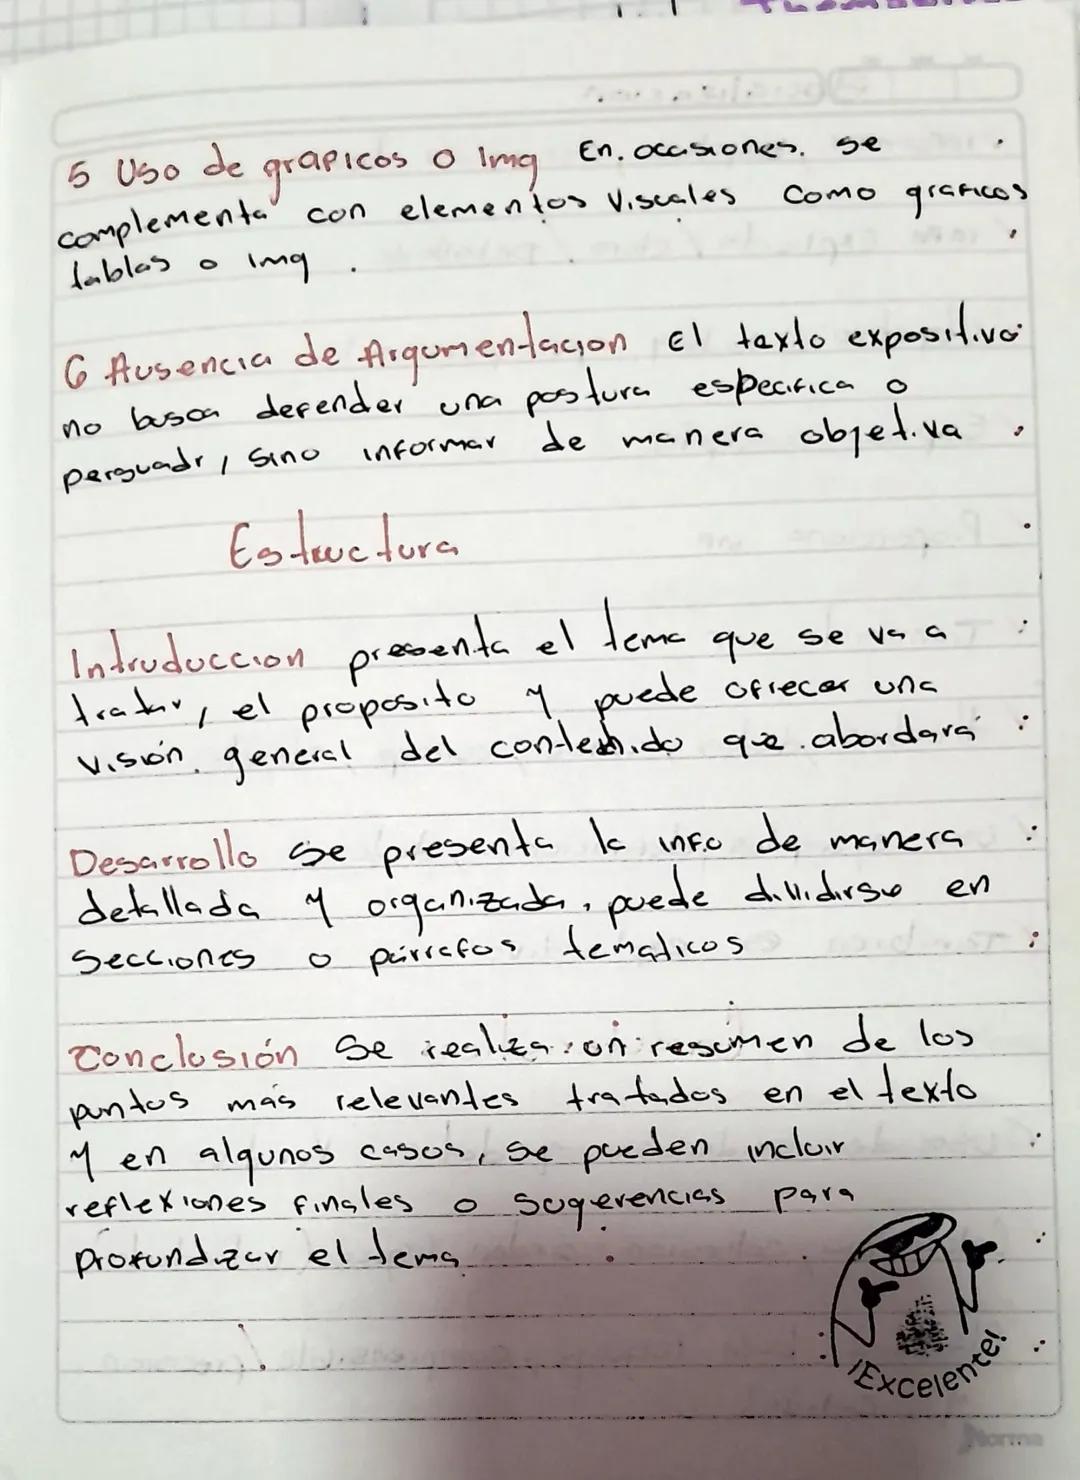 5 Uso de grapicos o Img En. ocasiones. se
complementa con elementos Viscales Como graficos
tablas o img.
6 Ausencia de Argumentacion El texto expositivo
no busca defender una postura especifica o
persuadr, sino informar de manera objetiva
Estructura
Intruduccion presenta el tema que se va a
tratar, el proposito y puede ofrecer una
visión general del contenido que abordará
Desarrollo se presenta la info de manera
detallada y organizada, puede dividirse en
secciones o párrafos tematicos
Conclusión Se realiza un resumen de los
puntos más relevantes tratados en el texto
y en algunos casos, se pueden incluir
reflexiones finales o sugerencias para
profundizar el tema
¡Excelente!
Norma